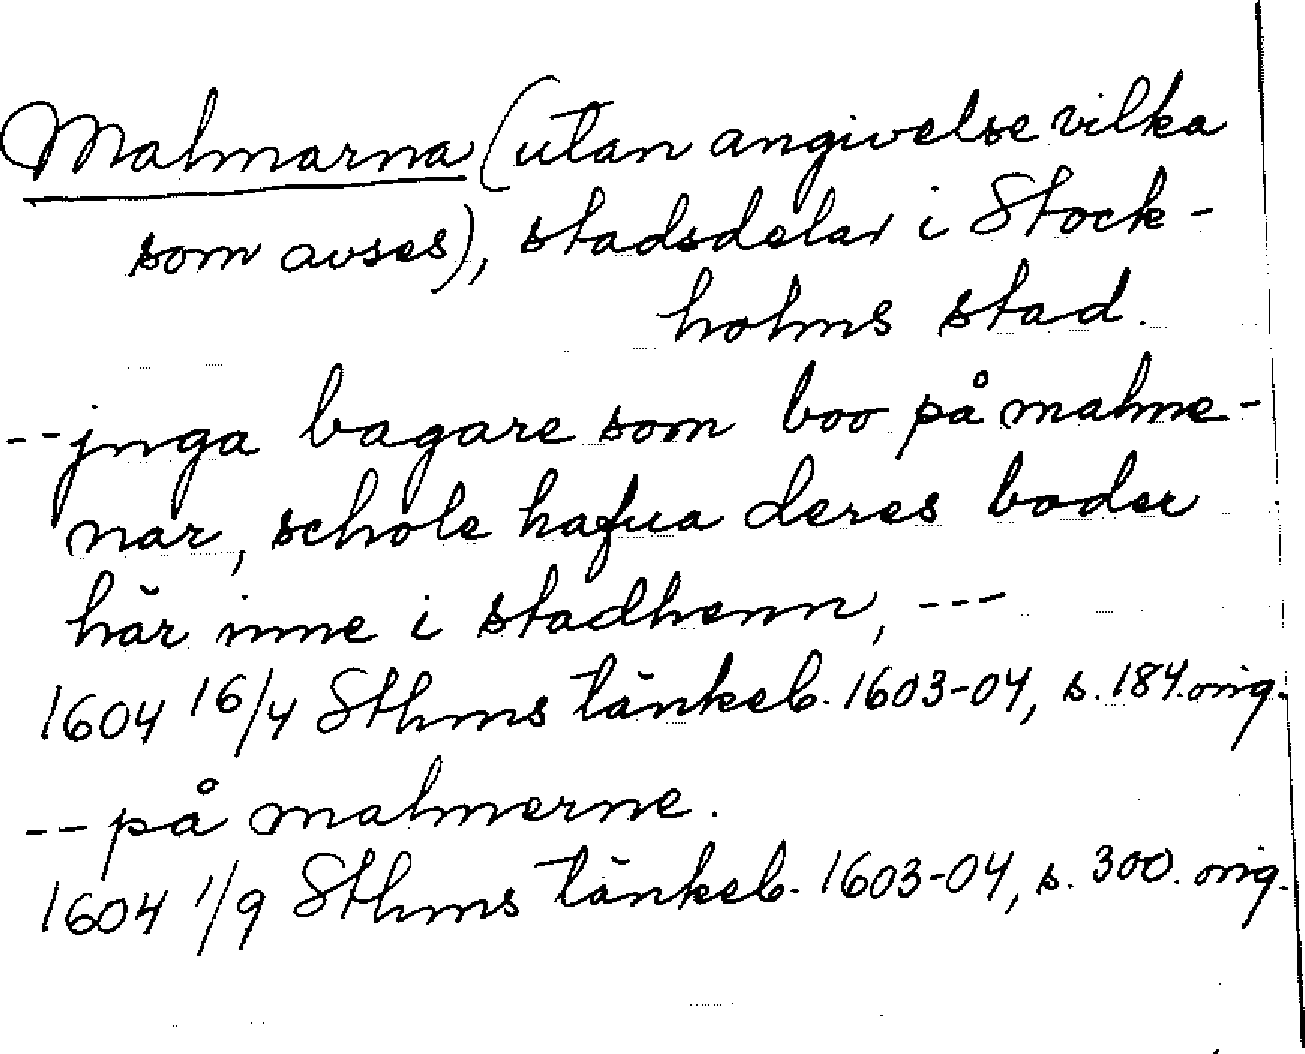 Malmarna (utan angivelse vilka
som avses), stadsdelar i Stock-
holms stad.
-- jnga bagare som boo på malme-
nar, schole hafua deres boder
här inne i stadhenn, ---
1604 16/4 Sthms tänkeb. 1603-04, s. 184. orig.
-- på malmerne.
1604 1/9 Sthms tänkeb. 1603-04, s. 300. orig.